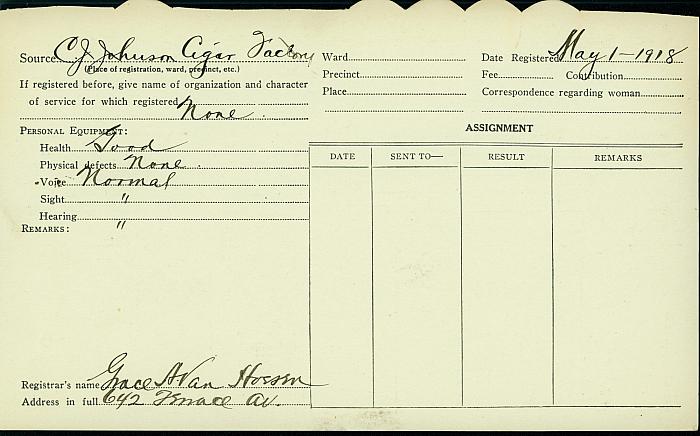 Source C J Johnson Cigar Factory
(Place of registration, ward, precinct, etc.)
If registered before, give name of organization and character
of service for which registered None
PERSONAL EQUIPMENT:
Health Good
Physical defects None
Voice Normal
Sight "
Hearing "
REMARKS:
Registrar's name Grace A Van Hoesen
Address in full 642 Terrace Av.
Ward
Precinct
Place
Date Registered May 1-1918
Fee Contribution
Correspondence regarding woman
ASSIGNMENT
DATE SENT TO— RESULT REMARKS